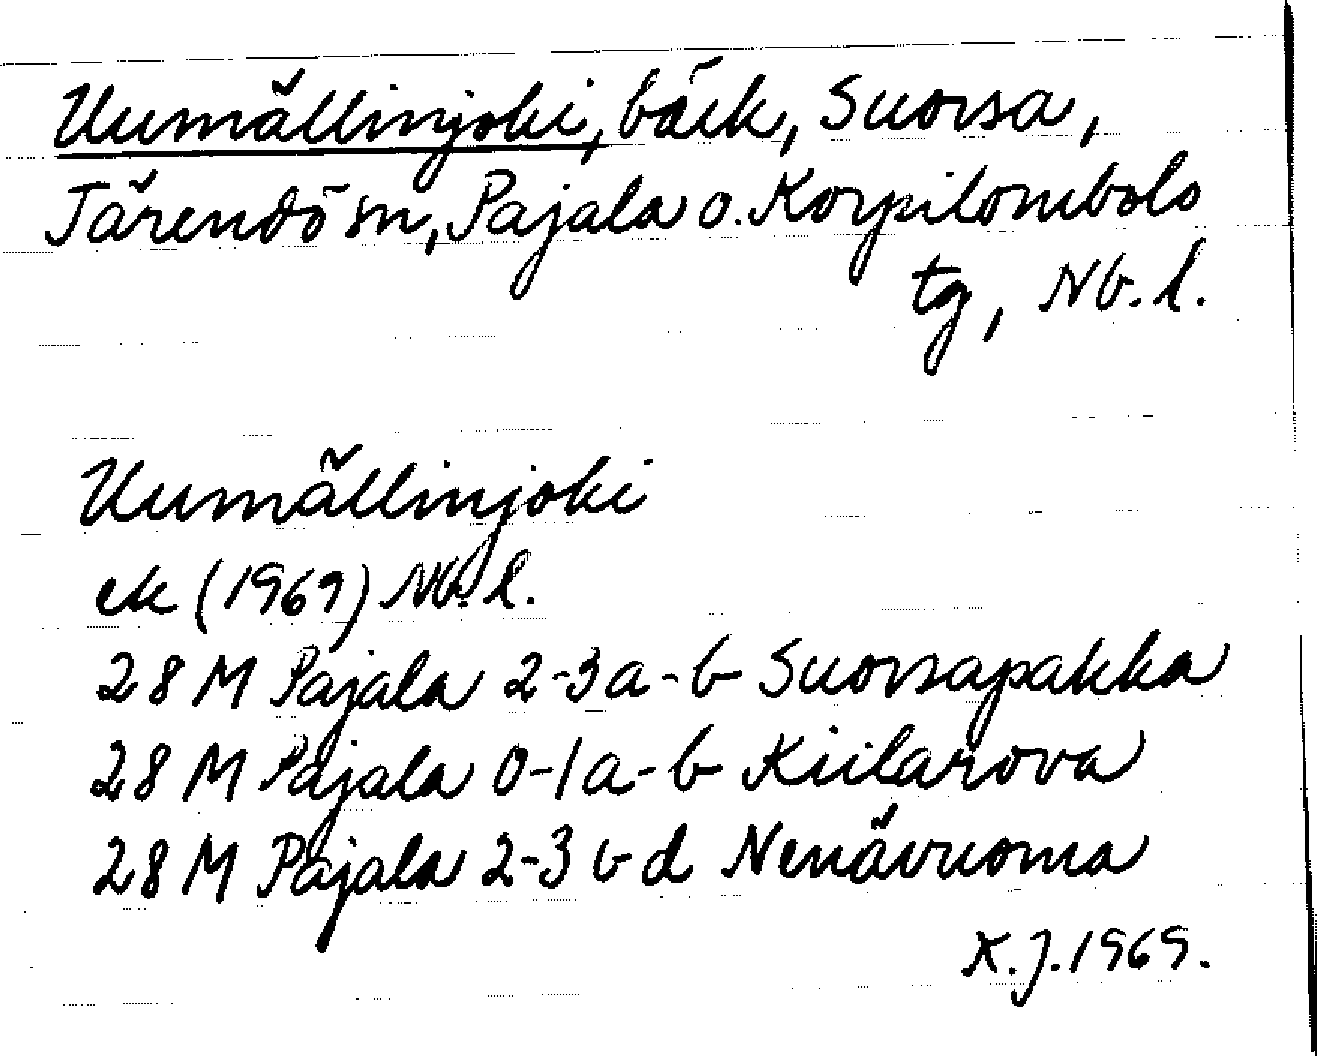 Uumällinjoki, bäck, Suorsa,
Tärendö sn, Pajala o. Korpilombolo
tg, Nb. l.
Uumällinjoki
ek (1969) Nb. l.
28 M Pajala 2-3 a-b Suorsapakka
28 M Pajala 0-1 a-b Kiilarova
28 M Pajala 2-3 c d Nenävuoma
K. J. 1969.